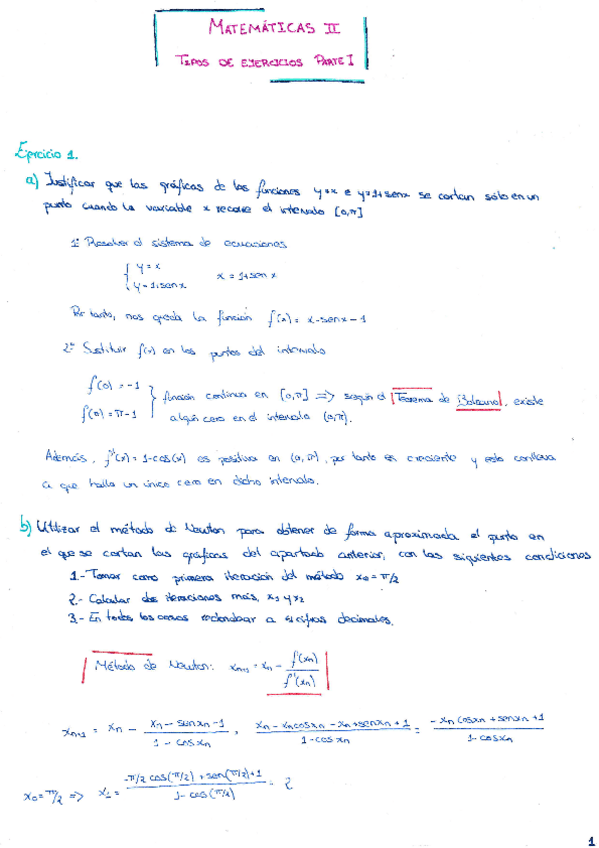 MATEMÁTICAS II
TIPOS DE EJERCICIOS PARTE I
Ejercicio 1.
a) Justificar que las gráficas de las funciones y=x e y=1+senx se cortan sólo en un
punto cuando la variable x recorre el intervalo [0,π]
1º Resolver el sistema de ecuaciones
{ y=x
{ y=1+senx
x = 1+sen x
Por tanto, nos queda la función f(x)= x-senx-1
2º Sustituir f(x) en los puntos del intervalo
f(0) = -1
f(0) = π-1
} función continua en [0,π] => según el Teorema de Bolzano, existe
algún cero en el intervalo (0,π).
Además, f'(x) = 1-cos(x) es positiva en (0,π), por tanto es creciente y esto conlleva
a que halla un único cero en dicho intervalo.
b) Utilizar el método de Newton para obtener de forma aproximada el punto en
el que se cortan las gráficas del apartado anterior, con las siguientes condiciones
1.- Tomar como primera iteración del método x₀=π/2
2.- Calcular dos iteraciones más, x₁ y x₂
3.- En todos los casos redondear a cifras decimales.
Método de Newton: xₙ₊₁ = xₙ - f(xₙ)/f'(xₙ)
xₙ₊₁ = xₙ - (xₙ - senxₙ - 1)/(1 - cosxₙ), (xₙ - xₙcosxₙ - xₙ + senxₙ + 1)/(1 - cosxₙ) = (-xₙcosxₙ + senxₙ + 1)/(1 - cosxₙ)
x₀=π/2 => x₁ = (-π/2 cos(π/2) + sen(π/2)+1)/(1 - cos(π/2)) = 2
1